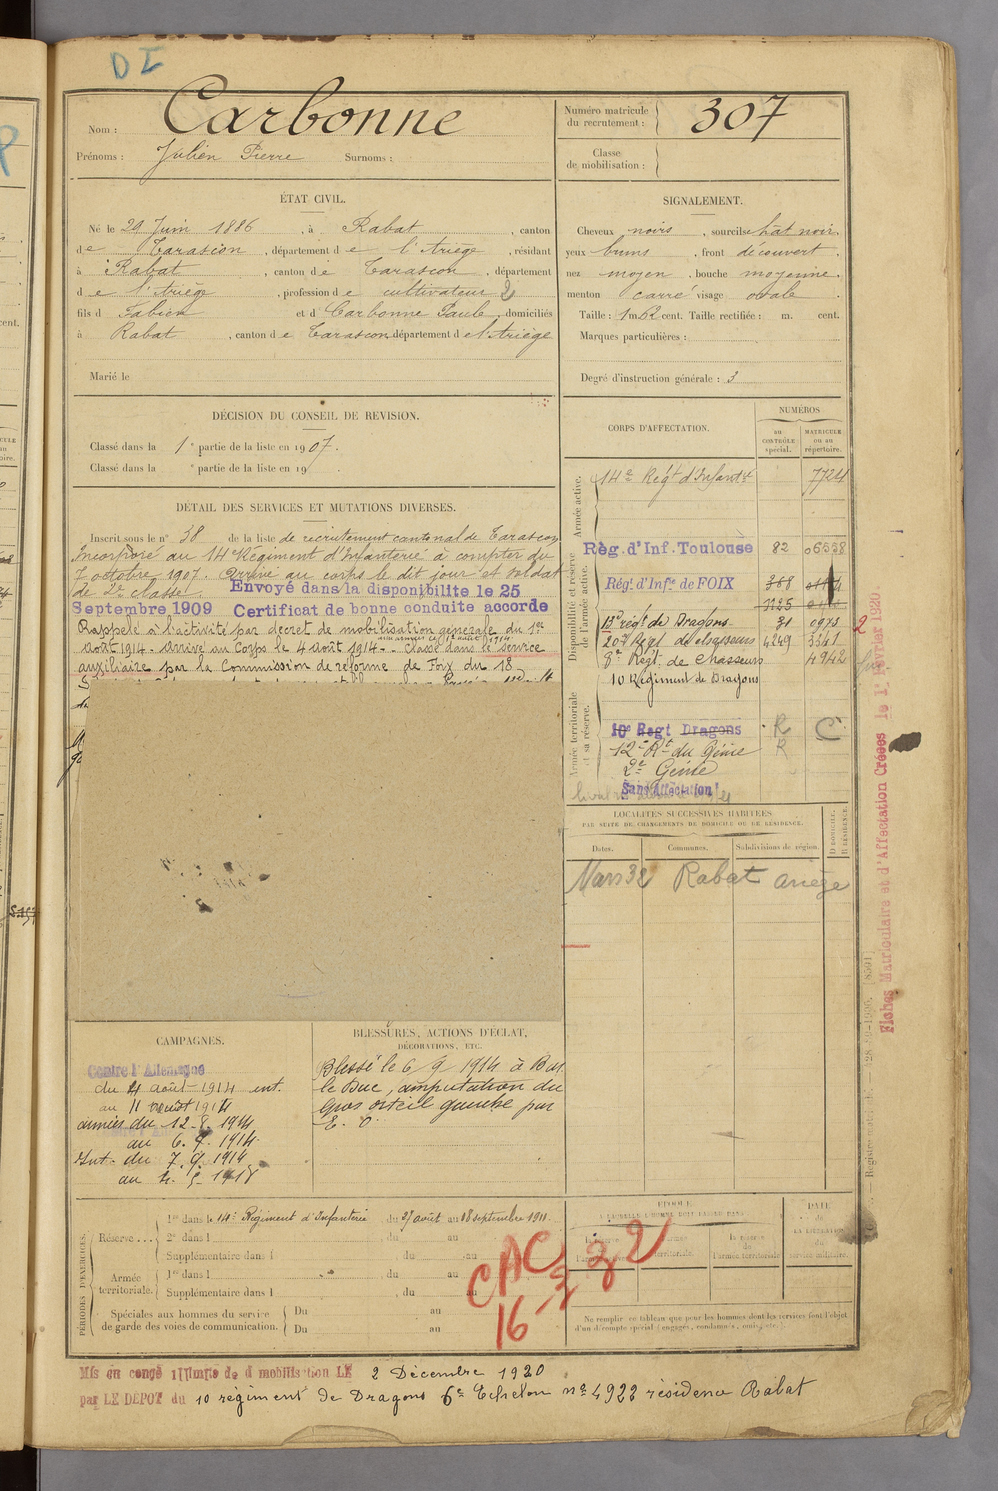 DI
Nom : Carbonne
Prénoms : Julien Pierre Surnoms :
Numéro matricule du recrutement : 307
Classe de mobilisation :
ÉTAT CIVIL.
Né le 29 Juin 1886, à Rabat, canton
de Tarascon, département de l'Ariège, résidant
à Rabat, canton de Tarascon, département
de l'Ariège, profession de cultivateur 2
fils d Fabien et d Carbonne Paule, domiciliés
à Rabat, canton de Tarascon département de l'Ariège
Marié le
SIGNALEMENT.
Cheveux noirs, sourcils chat noir,
yeux bruns, front découvert,
nez moyen, bouche moyenne,
menton carré visage ovale
Taille : 1 m 62 cent. Taille rectifiée : m. cent.
Marques particulières :
Degré d'instruction générale : 3
DÉCISION DU CONSEIL DE REVISION.
Classé dans la 1e partie de la liste en 1907.
Classé dans la e partie de la liste en 19
DÉTAIL DES SERVICES ET MUTATIONS DIVERSES.
Inscrit sous le n° 38 de la liste de recrutement cantonal de Tarascon
Incorporé au 14e Régiment d'Infanterie à compter du
7 octobre 1907. Arrivé au corps le dit jour et soldat
de 2e classe. Envoyé dans la disponibilite le 25
Septembre 1909 Certificat de bonne conduite accorde
Rappelé à l'activité par decret de mobilisation générale du 1er
août 1914. Arrivé au Corps le 4 août 1914. Classé dans le service
auxiliaire par la Commission de reforme de Foix du 18
CORPS D'AFFECTATION.
NUMÉROS
au CONTRÔLE spécial.
MATRICULE ou au répertoire.
Armée active.
14e Régt d'Infantie 7724
Disponibilité et réserve de l'armée active.
Rég. d'Inf. Toulouse 82 06538
Régt d'Infie de FOIX 368
1125
13e régt de Dragons 31 0973
20e Régt de chasseurs 4249 3341
8e Régt de Chasseurs 4942
10 Régiment de Dragons
Armée territoriale et sa réserve.
10e Regt Dragons R C
12e Rt du Génie R
2e Génie
Sans Affectation
LOCALITÉS SUCCESSIVES HABITÉES
PAR SUITE DE CHANGEMENTS DE DOMICILE OU DE RÉSIDENCE.
Dates. Communes. Subdivisions de région. D DOMICILE. R RÉSIDENCE.
Mars 32 Rabat ariège
Fiches Matriculaire et d'Affectation Créées le 1er Février 1920
CAMPAGNES.
Contre l'Allemagne
du 4 août 1914 int.
au 11 août 1914
armées du 12-8-1914
au 6. 9. 1914.
Int. du 7. 9. 1914
BLESSURES, ACTIONS D'ÉCLAT,
DÉCORATIONS, ETC.
Blessé le 6/9 1914 à Bar
le Duc, amputation du
Gros orteil gauche par
E. O.
PÉRIODES D'EXERCICES.
Réserve ... 1re dans le 14e Régiment d'Infanterie du 27 août au 18 septembre 1911.
2e dans l , du au
Supplémentaire dans l , du au
Armée territoriale. 1re dans l , du au
Supplémentaire dans l , du au
Spéciales aux hommes du service de garde des voies de communication. Du au
Du au
CAC
16-2-32
ÉPOQUE
À LAQUELLE L'HOMME DOIT PASSER DANS
DATE de LA LIBÉRATION du service militaire.
Ne remplir ce tableau que pour les hommes dont les services font l'objet
d'un décompte spécial (engagés, condamnés, omis, etc.).
Mis en congé illimité de démobilisation LE 2 Décembre 1920
par LE DEPOT du 10 régiment de Dragons 6e Echelon n° 4922 résidence Rabat